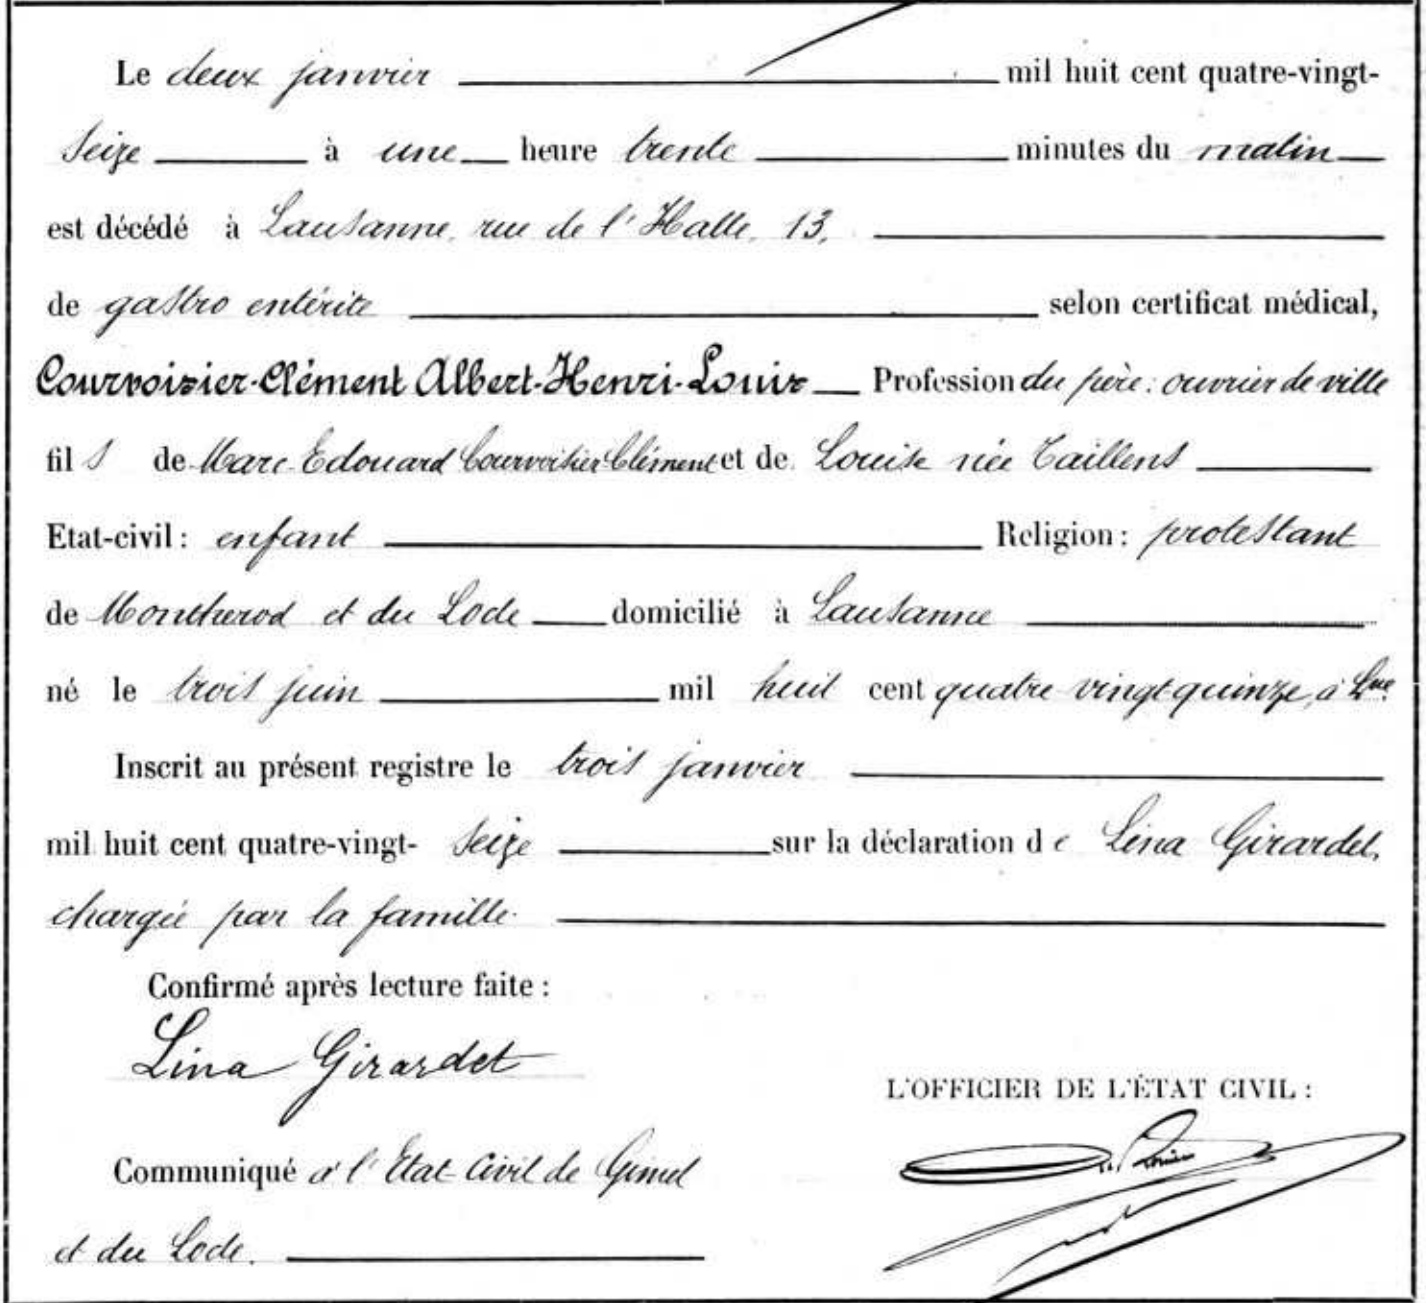 Le deux janvier mil huit cent quatre-vingt-
seize à une heure trente minutes du matin
est décédé à Lausanne, rue de l'Halle, 13,
de gastro entérite selon certificat médical,
Courvoisier-Clément Albert-Henri-Louis Profession du père: ouvrier de ville
fils de Marc-Edouard Courvoisier Clément et de Louise née Taillens
Etat-civil: enfant Religion: protestant
de Montherod et du Locle domicilié à Lausanne
né le trois juin mil huit cent quatre vingt quinze, à Lne
Inscrit au présent registre le trois janvier
mil huit cent quatre-vingt-seize sur la déclaration de Lina Girardet,
chargée par la famille.
Confirmé après lecture faite:
Lina Girardet
L'OFFICIER DE L'ÉTAT CIVIL:
Communiqué à l'Etat-Civil de Gimel
et du Locle.